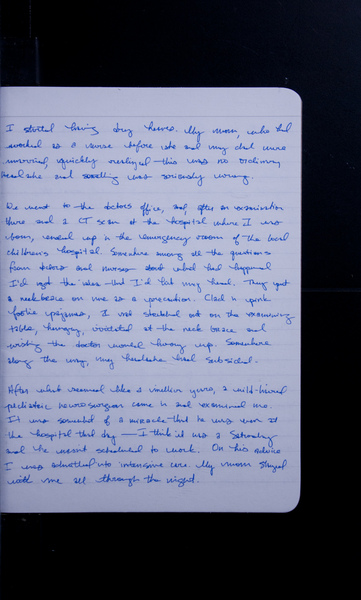 I started having dry heaves. My mom, who had
worked as a nurse before she and my dad were
married, quickly realized this was no ordinary
headache and something was seriously wrong.
We went to the doctor's office, and after an examination
there and a CT scan at the hospital where I was
born, ended up in the emergency room of the local
children's hospital. Somewhere among all the questions
from doctors and nurses about what had happened
I'd got the idea that I'd hit my head. They put
a neck brace on me as a precaution. Clad in pink
footie pajamas, I sat stretched out on the examining
table, hungry, irritated at the neck brace and
wishing the doctor would hurry up. Somewhere
along the way, my headache had subsided.
After what seemed like a million years, a mild-
pediatric neurosurgeon came in and examined me.
It was somewhat of a miracle that he was even at
the hospital that day — I think it was a Saturday
and he wasn't scheduled to work. On his advice
I was admitted into intensive care. My mom stayed
with me all through the night.